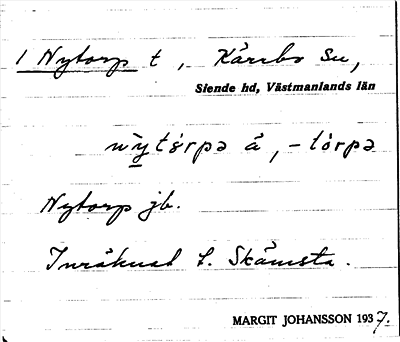 1 Nytorp t, Kärrbo sn,
Siende hd, Västmanlands län
nỳtórpə å, -tòrpə
Nytorp jb.
Inräknat t. Skämsta.
MARGIT JOHANSSON 1937.